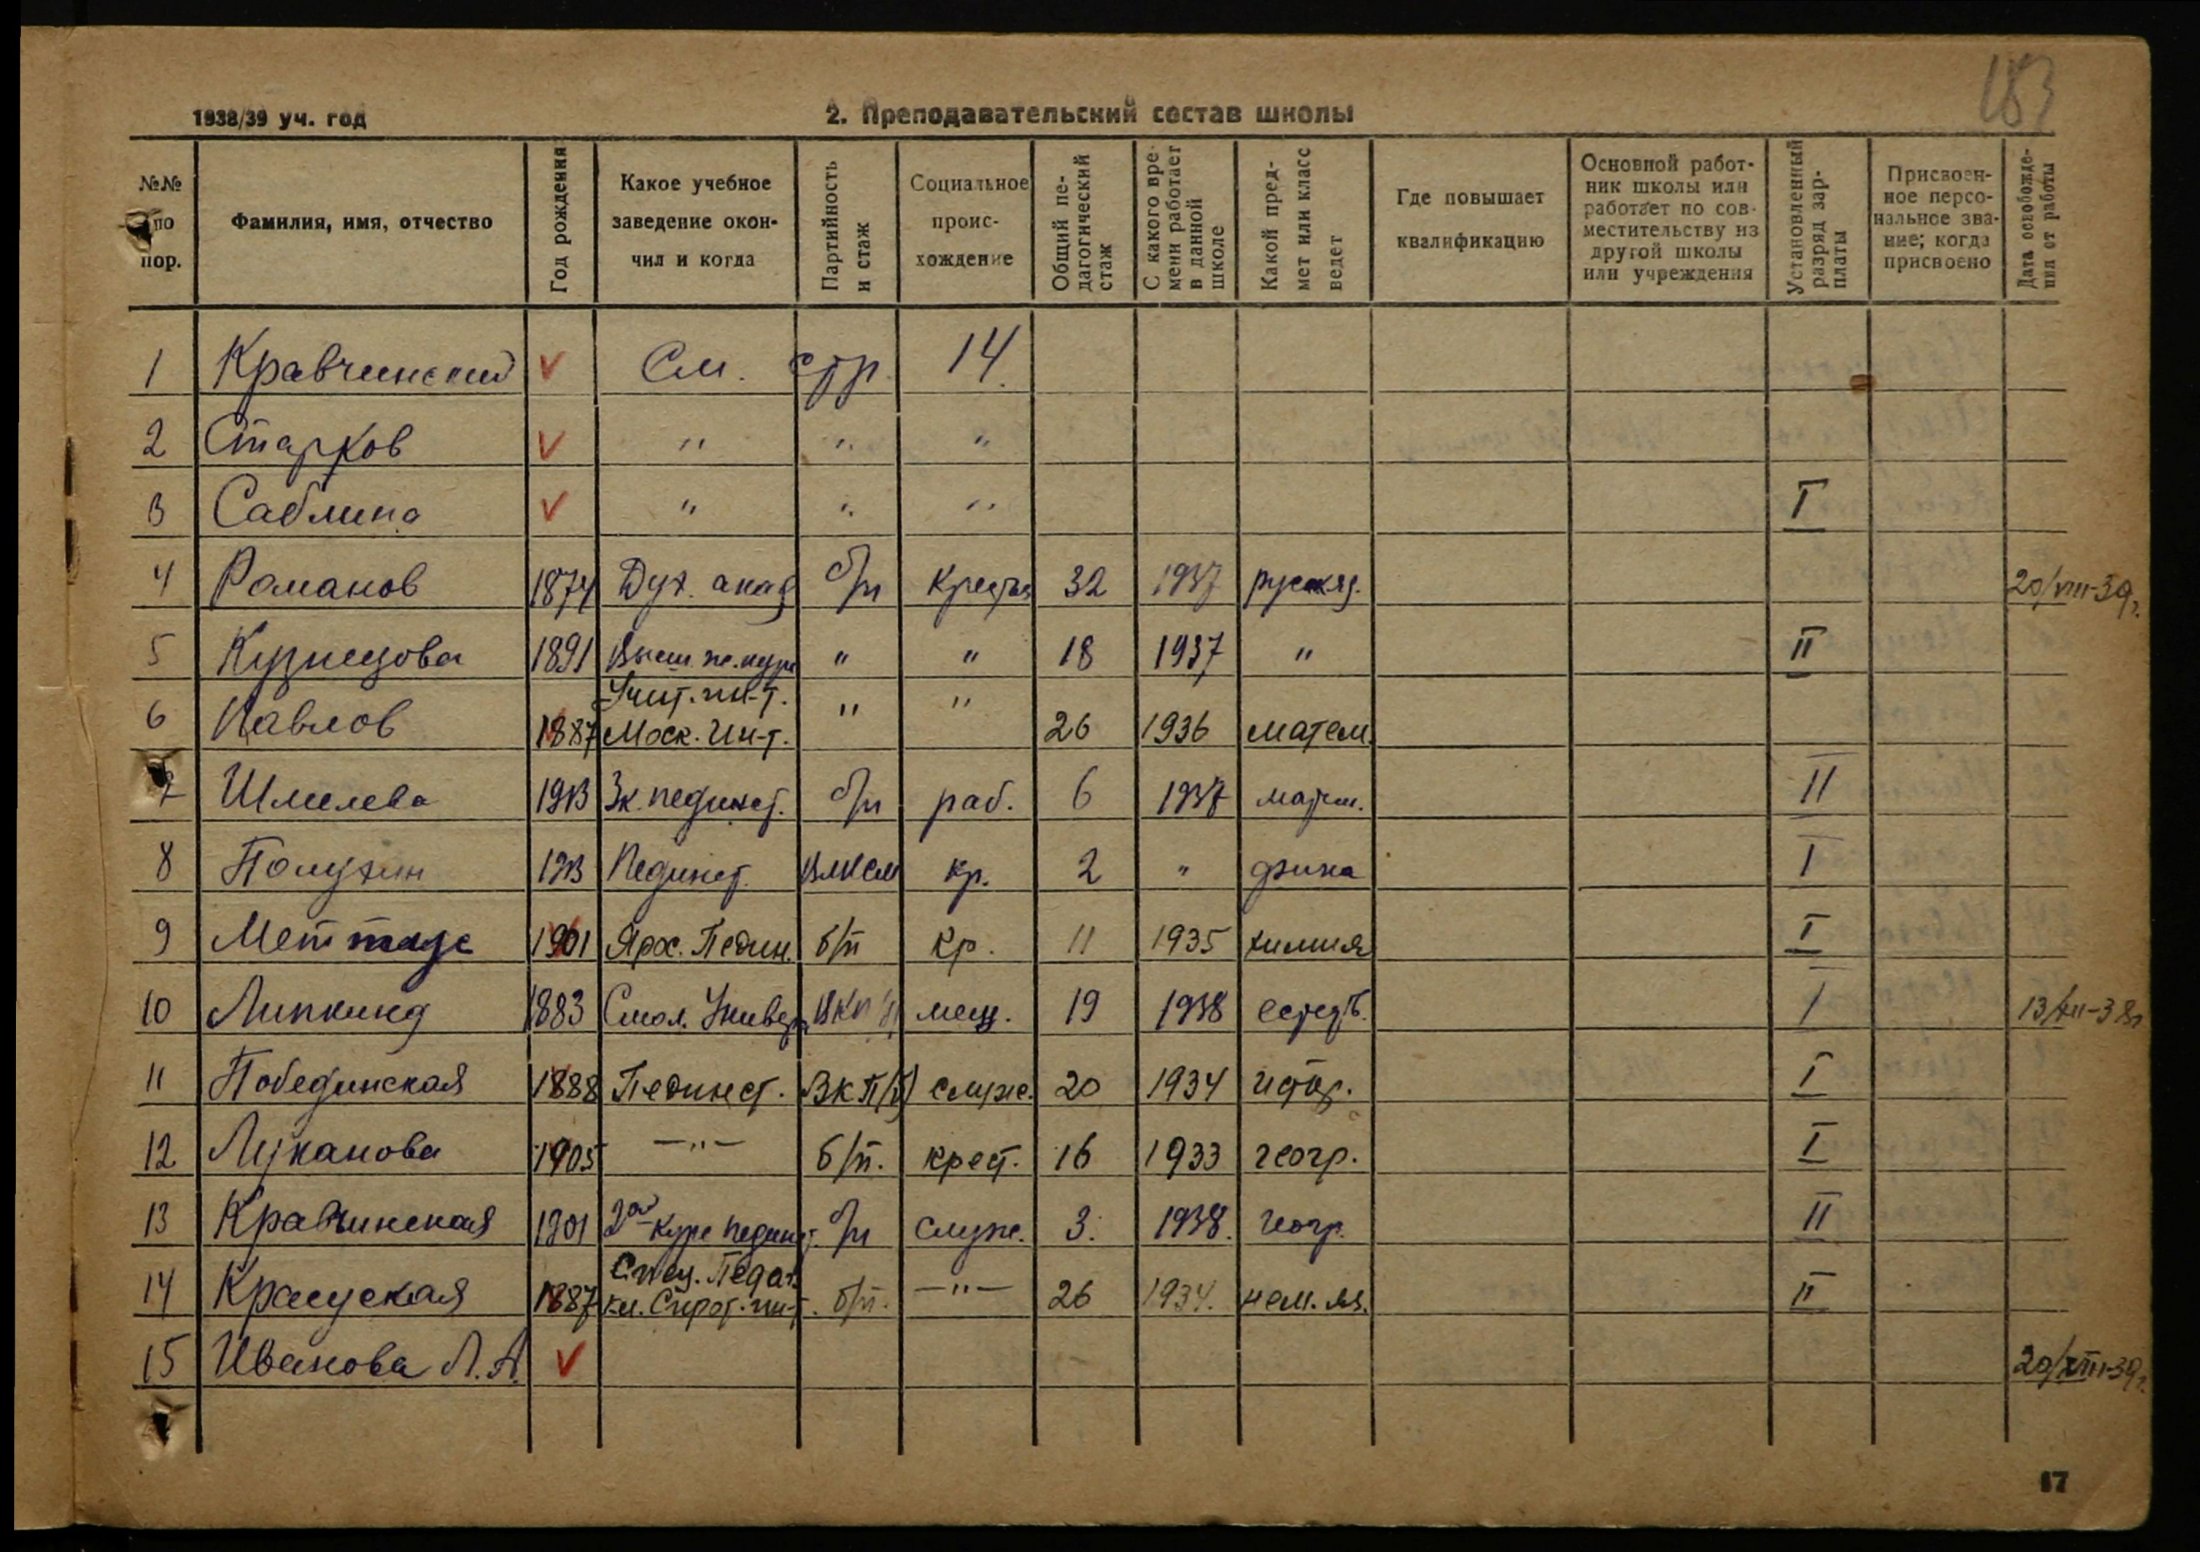 183
1938/39 уч. год
2. Преподавательский состав школы
№№ по пор.
Фамилия, имя, отчество
Год рождения
Какое учебное заведение окончил и когда
Партийность и стаж
Социальное происхождение
Общий педагогический стаж
С какого времени работает в данной школе
Какой предмет или класс ведет
Где повышает квалификацию
Основной работник школы или работает по совместительству из другой школы или учреждения
Установленный разряд зарплаты
Присвоенное персональное звание; когда присвоено
Дата освобождения от работы
1 Кравчинский V См. стр. 14.
2 Старков V " " "
3 Саблина V " " " I
4 Романов 1874 Дух. акад б/п Крестья 32 1937 русск яз. 20/VIII-39г.
5 Кузнецова 1891 Высш. же. курс " " 18 1937 " II
6 Павлов 1887 Учит. ин-т. Моск. Ин-т. " " 26 1936 матем.
7 Шмелева 1913 Зк. пединст. б/п раб. 6 1937 матем. II
8 Полухин 1913 Пединст. ВЛКСМ кр. 2 " физика I
9 1901 Ярос. Педин. б/п Кр. 11 1935 химия I
10 Липкинд 1883 Смол. Универ ВКП/б мещ. 19 1938 естеств. I 13/XII-38г
11 Побединская 1888 Пединст. ВКП/б) служ. 20 1934 истор. I
12 Луканова 1905 —"— б/п. крест. 16 1933 геогр. I
13 Кравчинская 1901 2ой курс пединст. б/п служ. 3. 1938. геогр. II
14 Красуская 1887 Спец. Педаг. кл. Сирот. ин-т. б/п. —"— 26 1934. нем. яз. II
15 Иванова Л.А. V 20/VIII-39г.
17